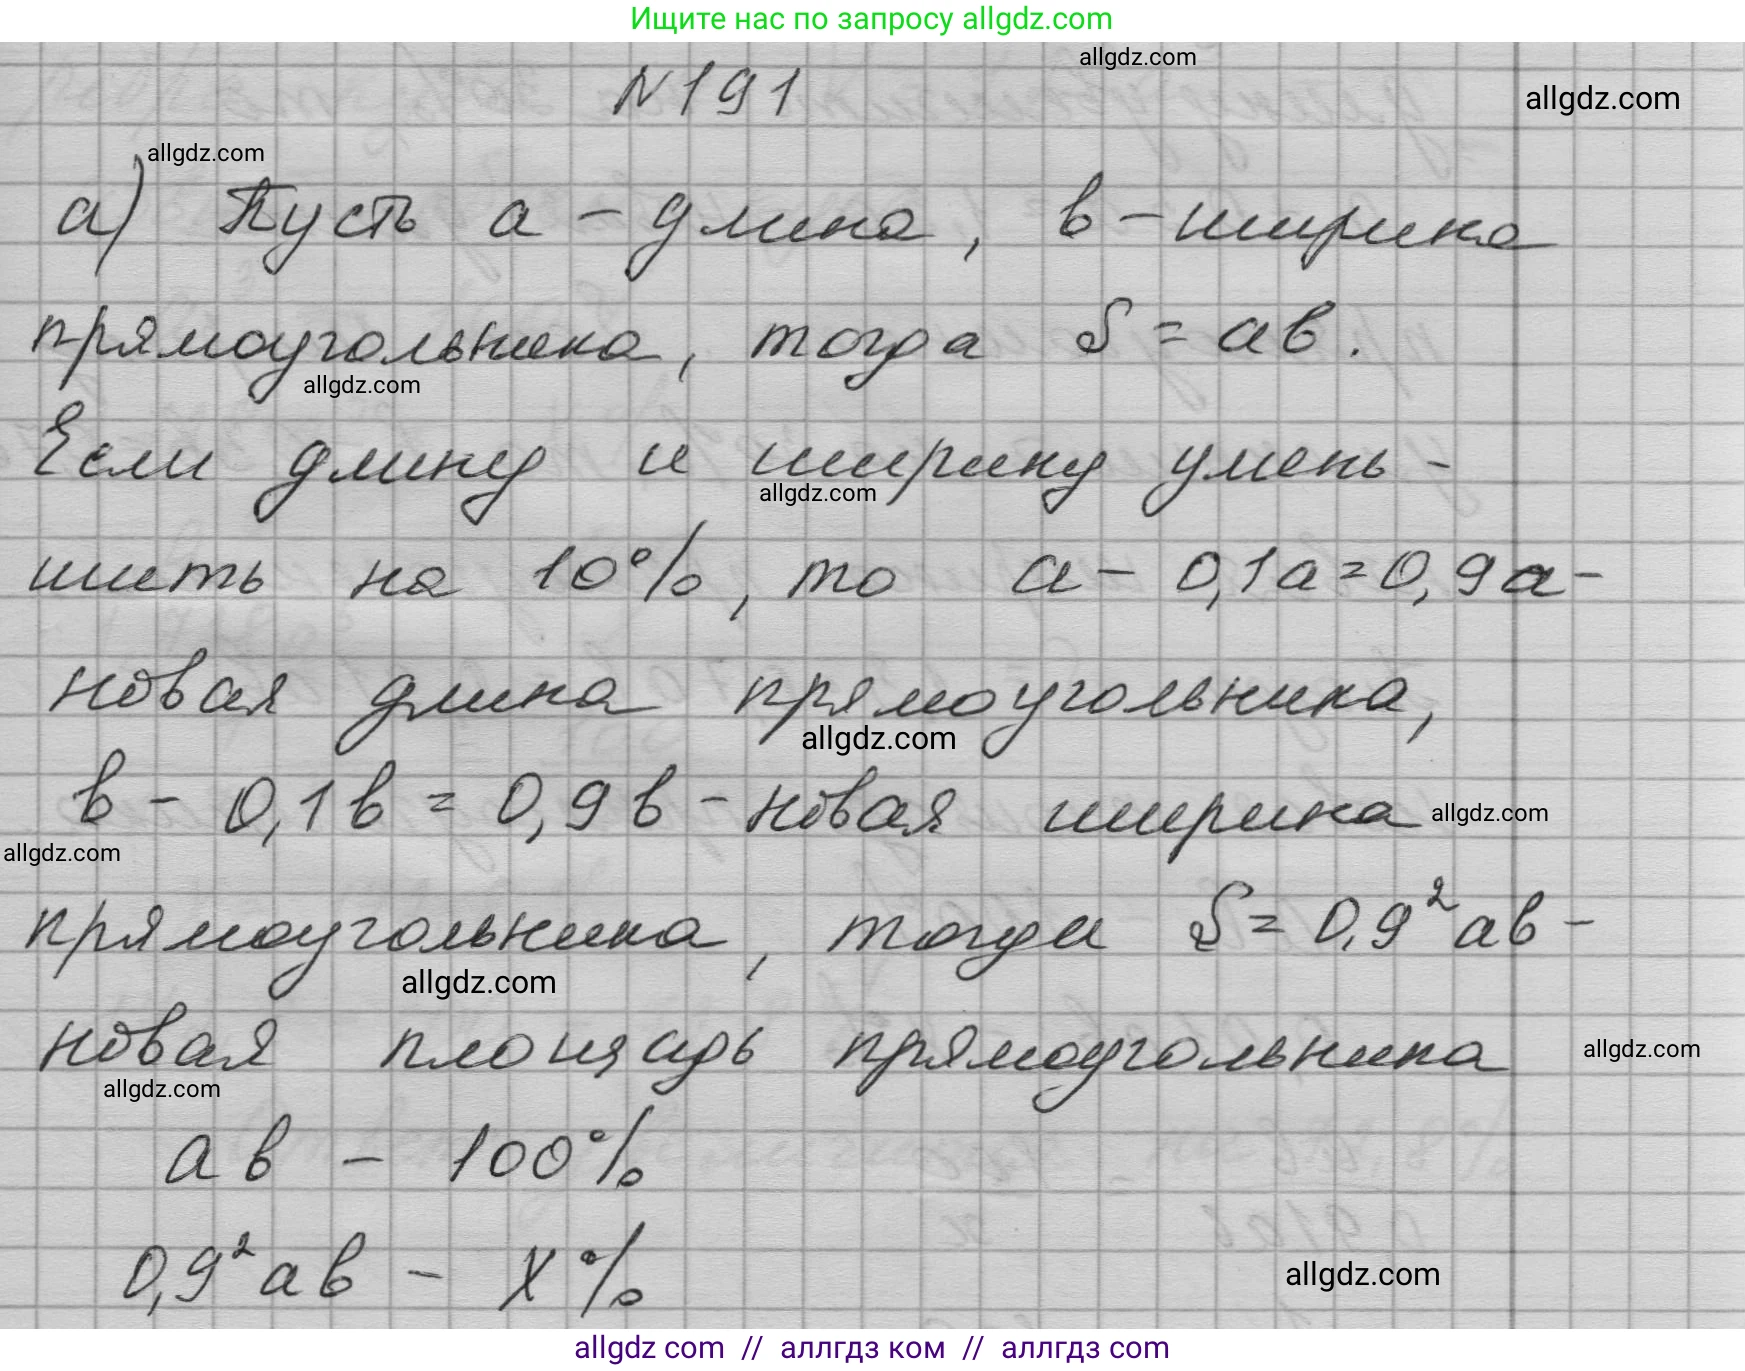 Ищите нас по запросу allgdz.com
allgdz.com
№191
allgdz.com
allgdz.com
а) Пусть а - длина, в - ширина
прямоугольника, тогда S = ав.
allgdz.com
Если длину и ширину умень-
allgdz.com
шить на 10%, то а - 0,1а = 0,9а -
новая длина прямоугольника,
allgdz.com
в - 0,1в = 0,9в - новая ширина
allgdz.com
allgdz.com
прямоугольника, тогда S = 0,9²ав -
allgdz.com
новая площадь прямоугольника
allgdz.com
allgdz.com
ав - 100%
0,9²ав - х%
allgdz.com
allgdz com // аллгдз ком // аллгдз.com